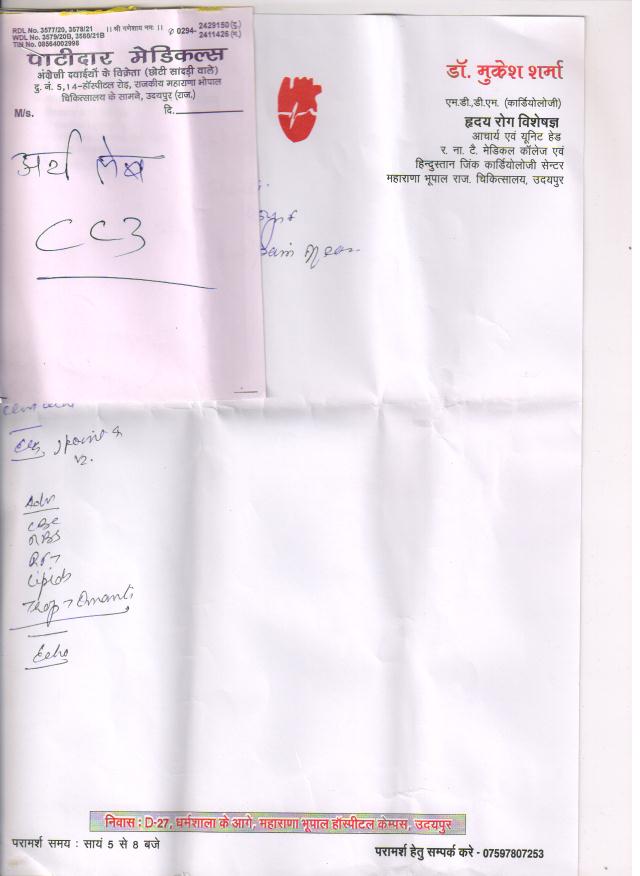 RDL No. 3577/20, 3578/21
WDL No. 3579/20B, 3580/21B
TIN No. 08564002998
।। श्री गणेशाय नमः ।।
0294- 2429150 (दु.)
2411426 (नि.)
पाटीदार मेडिकल्स
अंग्रेजी दवाईयों के विक्रेता (छोटी सादड़ी वाले)
दु. नं. 5,14-हॉस्पीटल रोड, राजकीय महाराणा भोपाल
चिकित्सालय के सामने, उदयपुर (राज.)
M/s. दि.
अर्थ लेब
CC3
डॉ. मुकेश शर्मा
एम.डी.,डी.एम. (कार्डियोलोजी)
हृदय रोग विशेषज्ञ
आचार्य एवं यूनिट हेड
र. ना. टै. मेडिकल कॉलेज एवं
हिन्दुस्तान जिंक कार्डियोलोजी सेन्टर
महाराणा भूपाल राज. चिकित्सालय, उदयपुर
Adv
CBC
RBS
RFT
Lipids
Trop T
Echo
निवास : D-27, धर्मशाला के आगे, महाराणा भूपाल हॉस्पीटल केम्पस, उदयपुर
परामर्श समय : सायं 5 से 8 बजे
परामर्श हेतु सम्पर्क करे - 07597807253